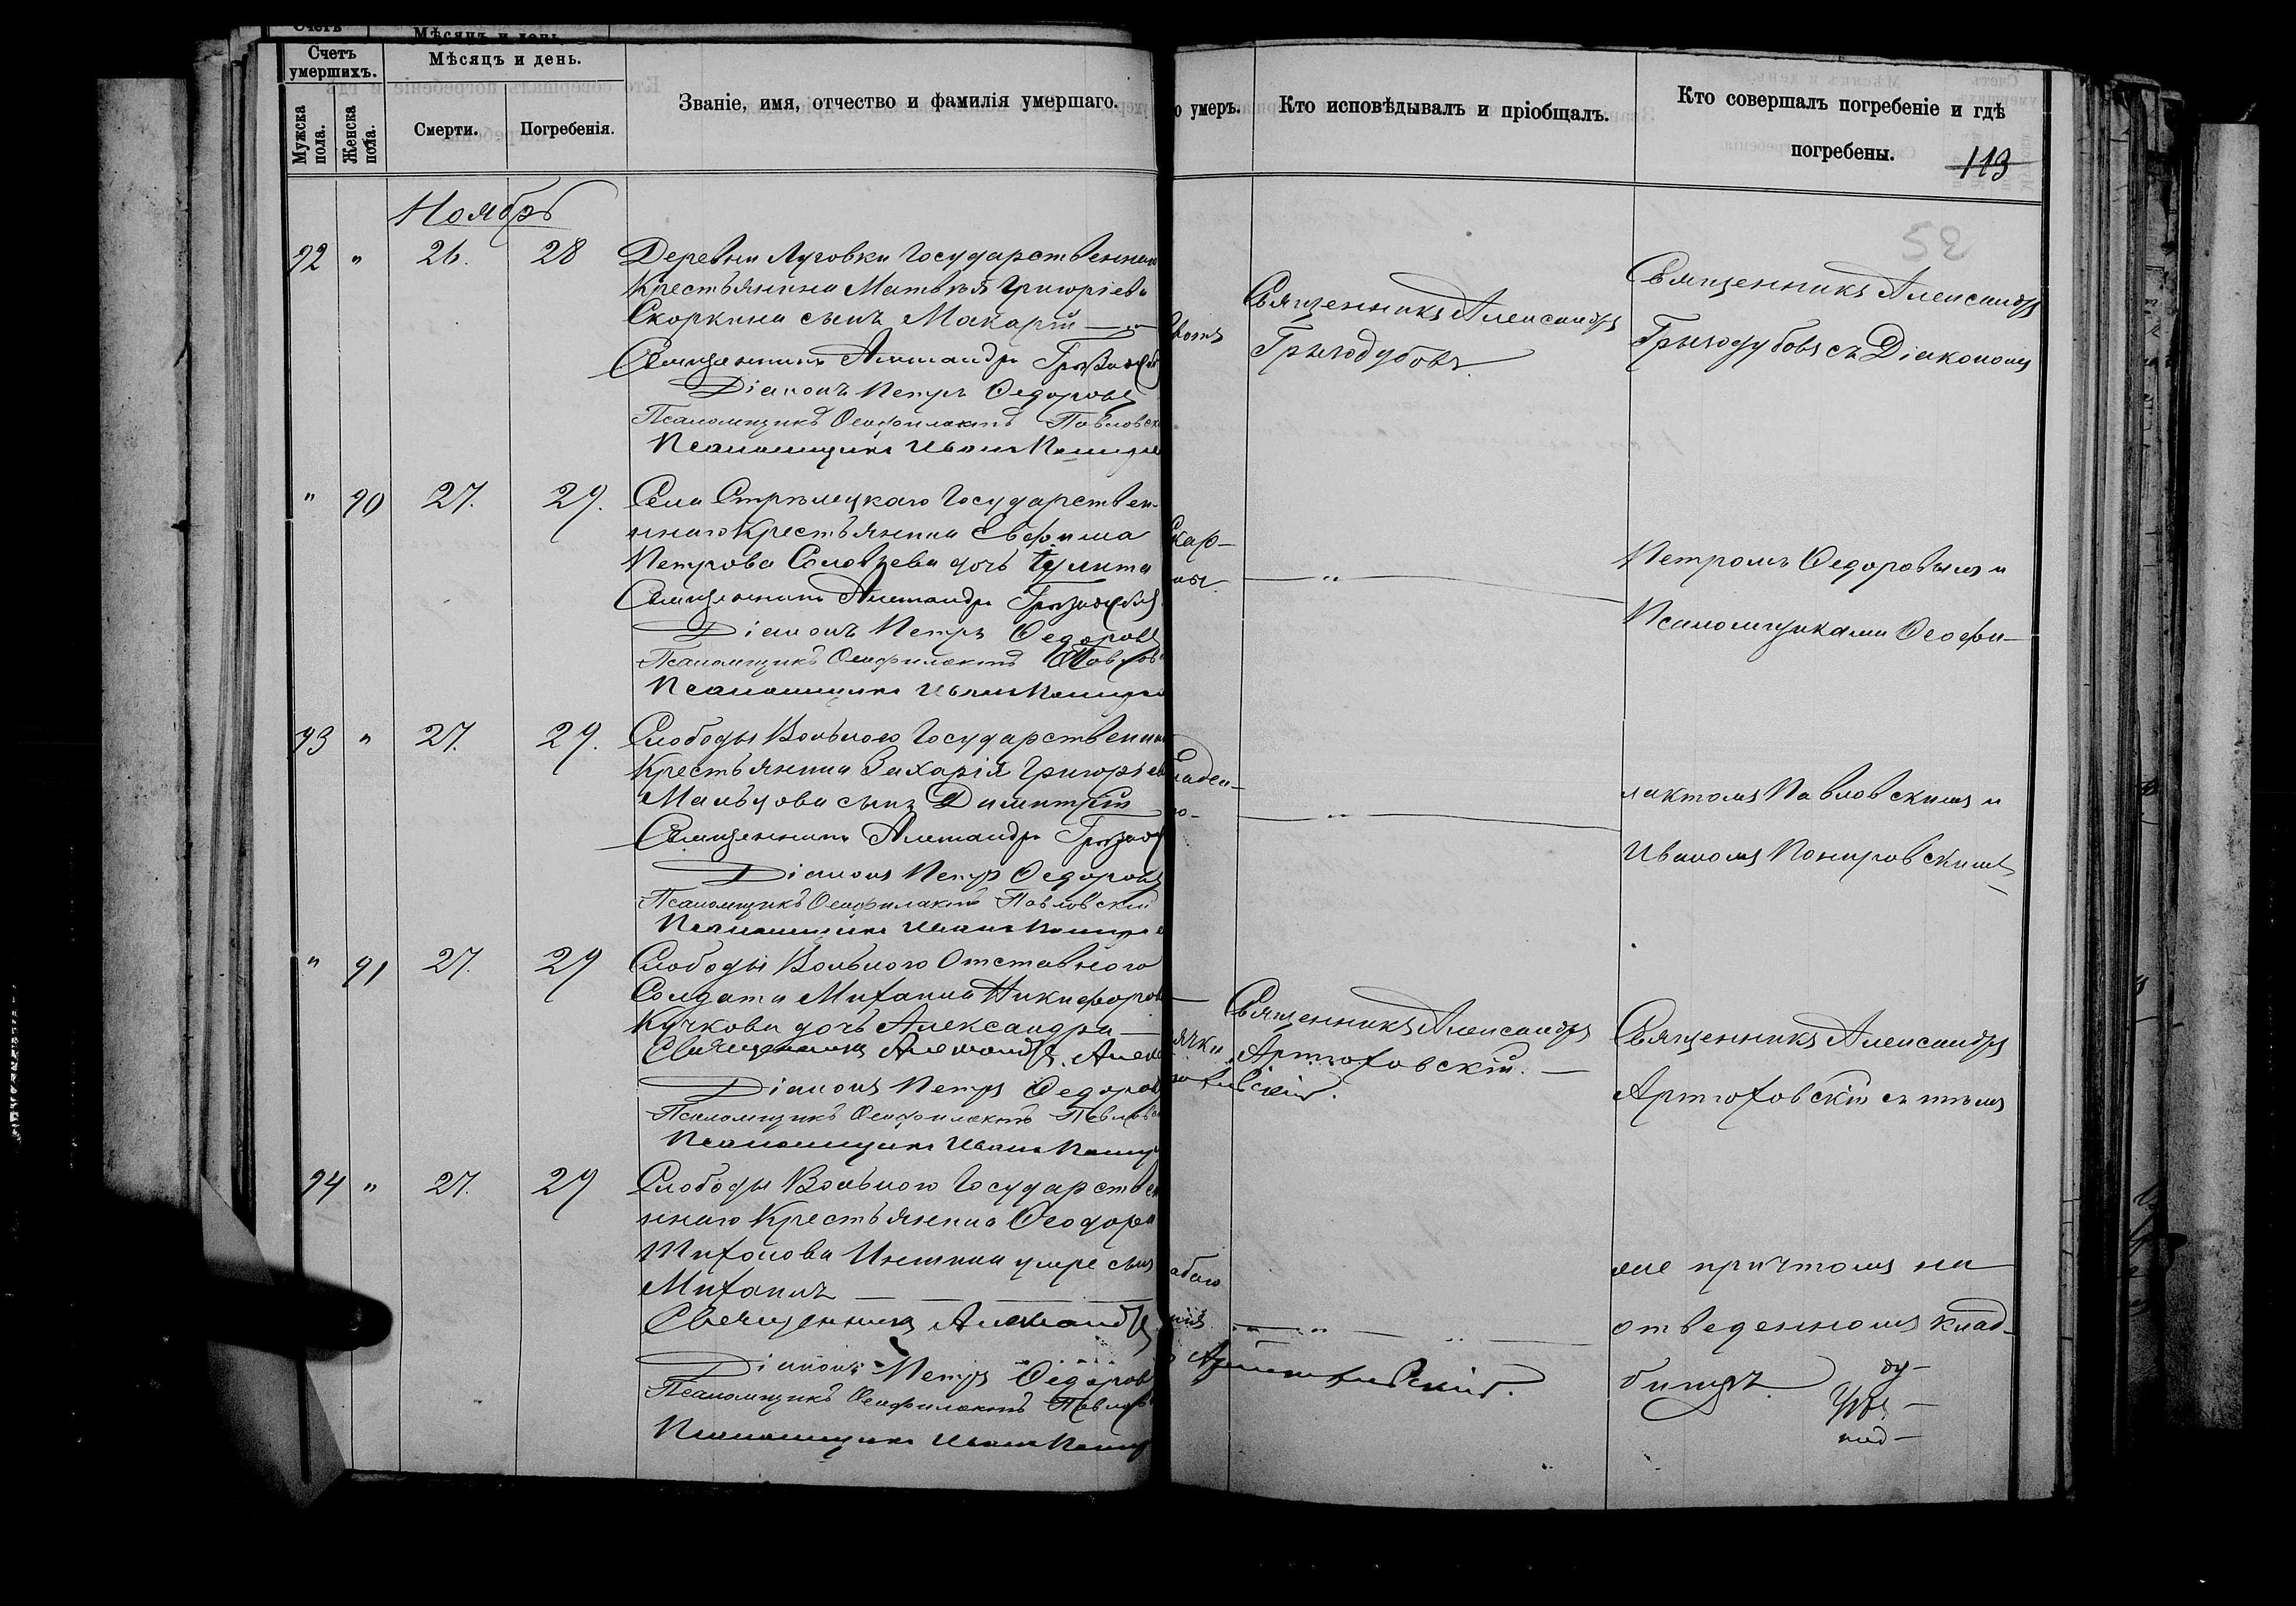 Счетъ
Мѣсяцъ и день.
Счетъ умершихъ.
Мѣсяцъ и день.
Мужска пола.
Женска пола.
Смерти.
Погребенія.
Званіе, имя, отчество и фамилія умершаго.
о умеръ.
Кто исповѣдывалъ и пріобщалъ.
Кто совершалъ погребеніе и гдѣ
погребены.
113
52
Ноябрь
92 " 26. 28 Деревни Луговки Государственнаго
Крестьянина Матвѣя Григоріева
Скоркина сынъ Макарій
Священникъ Александръ
Діаконъ Петръ Ѳедоровъ
Псаломщикъ Ѳеофилактъ Павловск
Псаломщикъ Иванъ
Священникъ Александръ
Грызодубовъ.
Священникъ Александръ
Грызодубовъ съ Діакономъ
" 90 27. 29. Села Стрѣлецкаго Государствен-
ннаго Крестьянина Евфима
Петрова Соловьева дочь Іулита
Священникъ Александръ
Діаконъ Петръ Ѳедоровъ
Псаломщикъ Ѳеофилактъ Павлов
Псаломщикъ Иванъ
Скар-
ны.
"
Петромъ Ѳедоровымъ и
Псаломщиками Ѳеофи-
93 " 27. 29. Слободы Вольного Государственна
Крестьянина Захарія Григорьев
Мальцова сынъ Димитрій
Священникъ Александръ
Діаконъ Петръ Ѳедоровъ
Псаломщикъ Ѳеофилактъ Павловскій
Псаломщикъ Иванъ
"
лактомъ Павловскимъ и
Иваномъ Поныровскимъ
" 91 27. 29 Слободы Вольного Отставного
Солдата Михаила Никифоров
Кучкова дочь Александра
Священникъ Александръ
Діаконъ Петръ Ѳедоров
Псаломщикъ Ѳеофилактъ Павловск
Псаломщикъ Иванъ
ячки
Священникъ Александръ
Артюховскій.
Священникъ Александръ
Артюховскій съ тѣмъ
94 " 27. 29 Слободы Вольного Государствен
ннаго Крестьянина Ѳеодора
Тихонова умре сынъ
Михаилъ
Священникъ Александръ
Діаконъ Петръ Ѳедоровъ
Псаломщикъ Ѳеофилактъ Павлов
Псаломщикъ Иванъ
"
же причтомъ на
отведенномъ клад-
бищѣ.